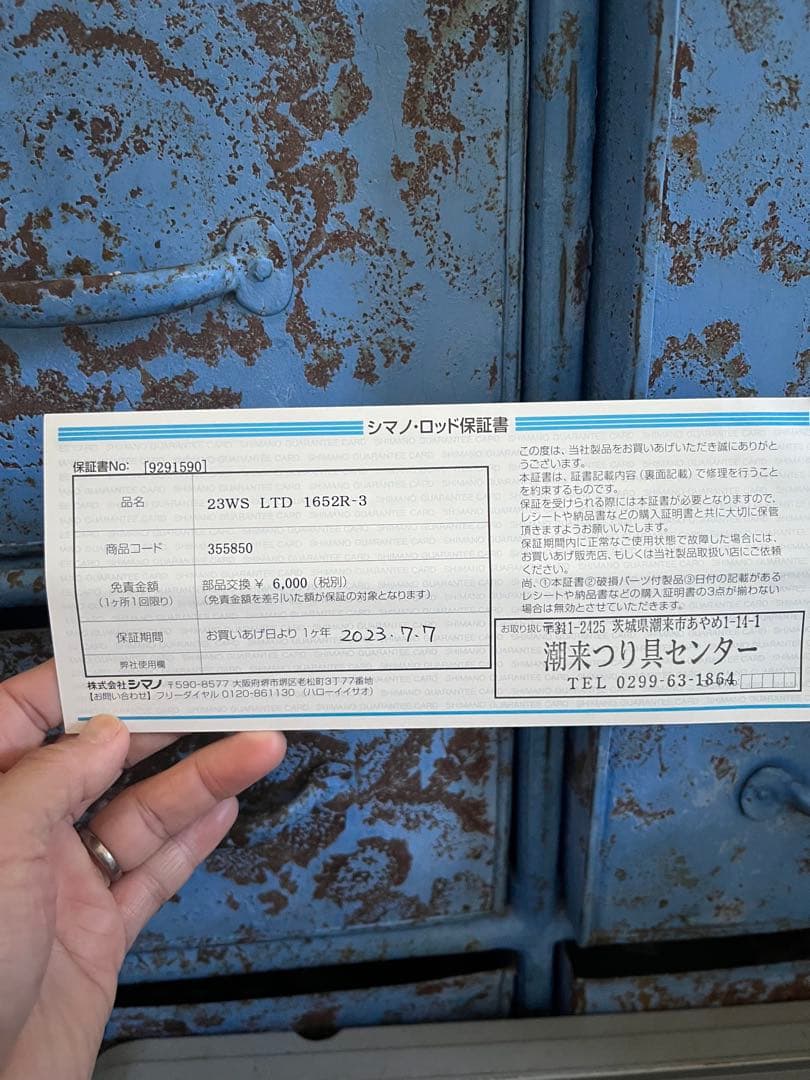 シマノ・ロッド保証書
保証書No: [9291590]
品名 23WS LTD 1652R-3
商品コード 355850
免責金額 部品交換 ¥ 6,000 (税別)
(1ヶ所1回限り) (免責金額を差引いた額が保証の対象となります)
保証期間 お買いあげ日より 1ヶ年 2023.7.7
弊社使用欄
株式会社シマノ 〒590-8577 大阪府堺市堺区老松町3丁77番地
【お問い合わせ】フリーダイヤル 0120-861130 (ハローイイサオ)
この度は、当社製品をお買いあげいただき誠にありがと
うございます。
本証書は、証書記載内容(裏面記載)で修理を行うこと
を約束するものです。
保証を受けられる際には本証書が必要となりますので、
レシートや納品書などの購入証明書と共に大切に保管
頂きますようお願いいたします。
保証期間内に正常なご使用状態で故障した場合には、
お買いあげ販売店、もしくは当社製品取扱い店にご依頼
ください。
尚、①本証書②破損パーツ付製品③日付の記載がある
レシートや納品書などの購入証明書の3点が揃わない
場合は無効とさせていただきます。
お取り扱い
〒311-2425 茨城県潮来市あやめ1-14-1
潮来つり具センター
TEL 0299-63-1864
SHIMANO GUARANTEE CARD